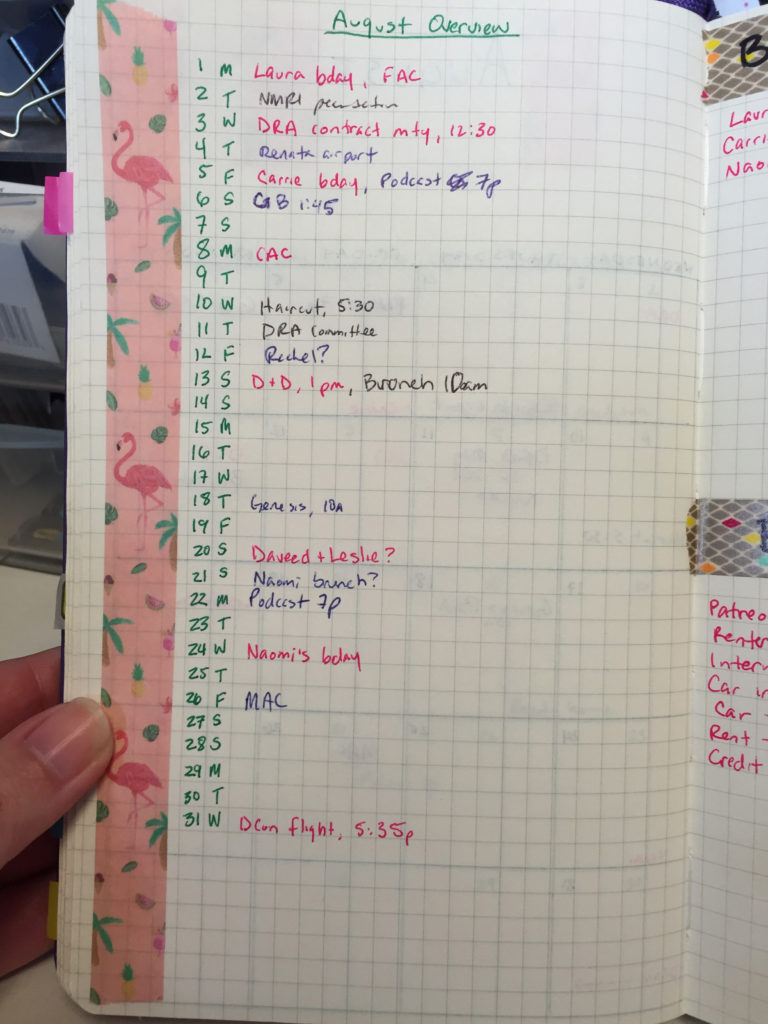 August Overview
1 M Laura bday, FAC
2 T NMRI
3 W DRA contract mtg, 12:30
4 T Renata airport
5 F Carrie bday, Podcast 7p
6 S GB 1:45
7 S
8 M CAC
9 T
10 W Haircut, 5:30
11 T DRA Committee
12 F Rachel?
13 S D+D, 1pm, Brunch 10am
14 S
15 M
16 T
17 W
18 T Genesis, 10A
19 F
20 S Daveed + Leslie?
21 S Naomi brunch?
22 M Podcast 7p
23 T
24 W Naomi's bday
25 T
26 F MAC
27 S
28 S
29 M
30 T
31 W DCon flight, 5:35p
B
Laur
Carri
Nao
Patreo
Renter
Intern
Car in
Car -
Rent -
Credit